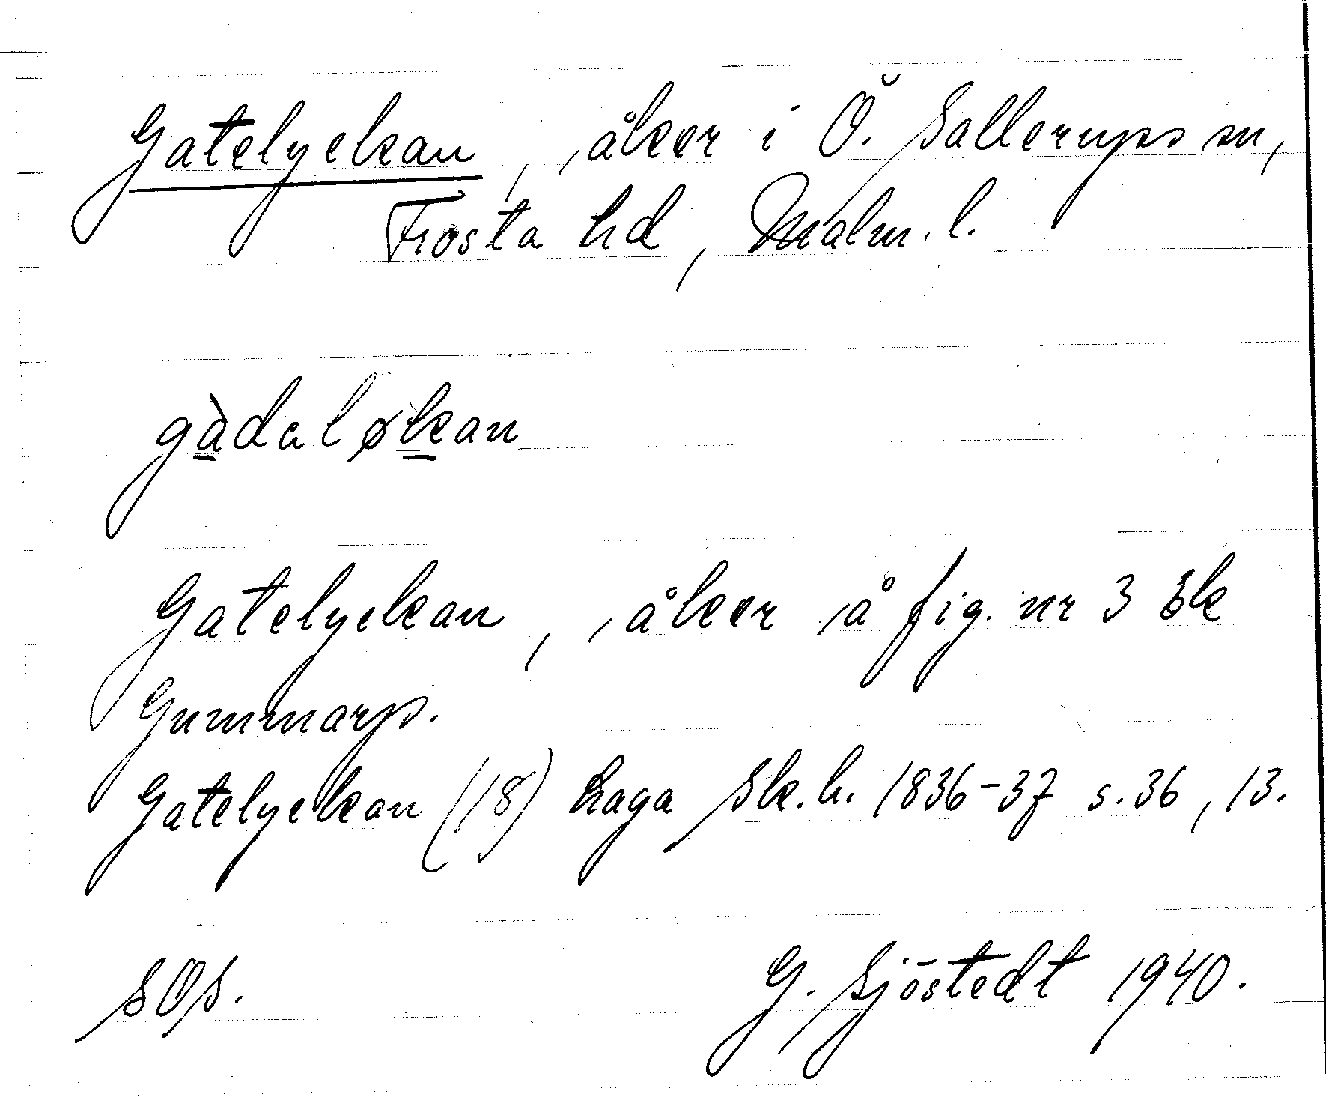 Gatelyckan, åker i Ö. Sallerups sn,
Frosta hd, Malm. l.
gàdaløkan
Gatelyckan, åker å fig. nr 3 Sk
Gummarp.
Gatelyckan (18) laga Sk.h. 1836-37 s. 36, 13.
SOS.
G. Sjöstedt 1940.